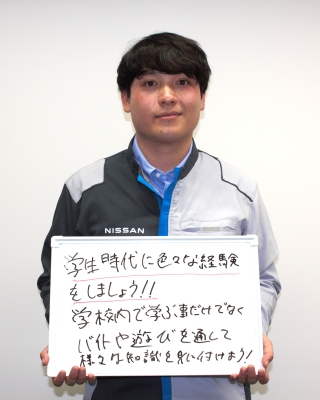 NISSAN
学生時代に色々な経験
をしましょう!!
学校内で学ぶ事だけでなく
バイトや遊びを通して
様々な知識を身に付けよう!